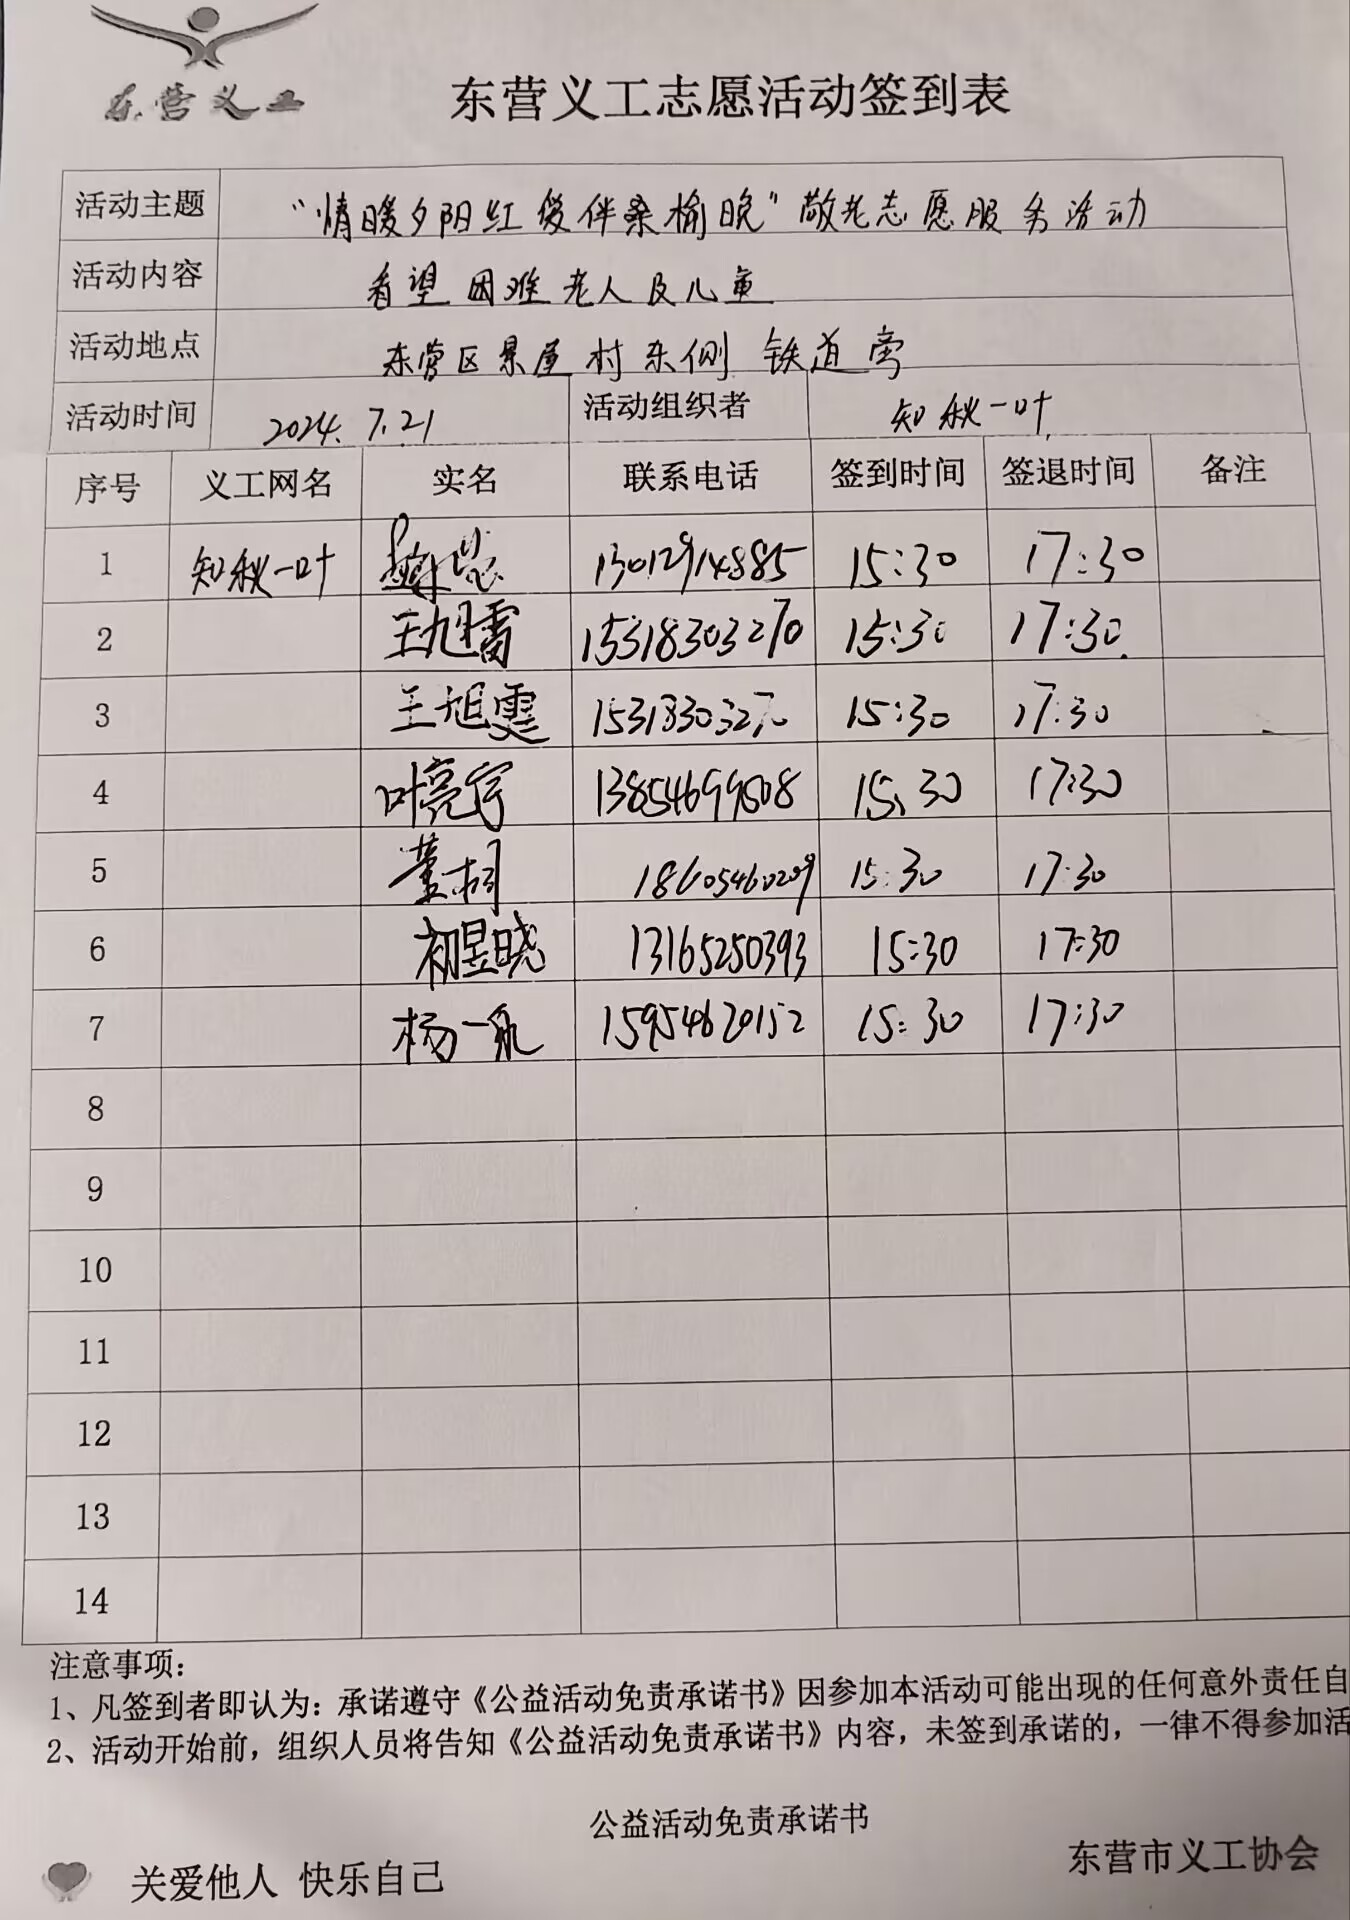 东营义工
东营义工志愿活动签到表
活动主题 “情暖夕阳红 爱伴桑榆晚”敬老志愿服务活动
活动内容 看望困难老人及儿童
活动地点 东营区景屋村东侧 铁道旁
活动时间 2024.7.21 活动组织者 知秋一叶
序号 义工网名 实名 联系电话 签到时间 签退时间 备注
1 知秋一叶 13012914885 15:30 17:30
2 王旭雷 15318303270 15:30 17:30
3 王旭雯 15318303270 15:30 17:30
4 叶亮宇 13854699508 15:30 17:30
5 董桐 18605460209 15:30 17:30
6 初昱晓 13165250393 15:30 17:30
7 杨一帆 15954620152 15:30 17:30
8
9
10
11
12
13
14
注意事项:
1、凡签到者即认为:承诺遵守《公益活动免责承诺书》因参加本活动可能出现的任何意外责任自
2、活动开始前,组织人员将告知《公益活动免责承诺书》内容,未签到承诺的,一律不得参加活
公益活动免责承诺书
关爱他人 快乐自己
东营市义工协会